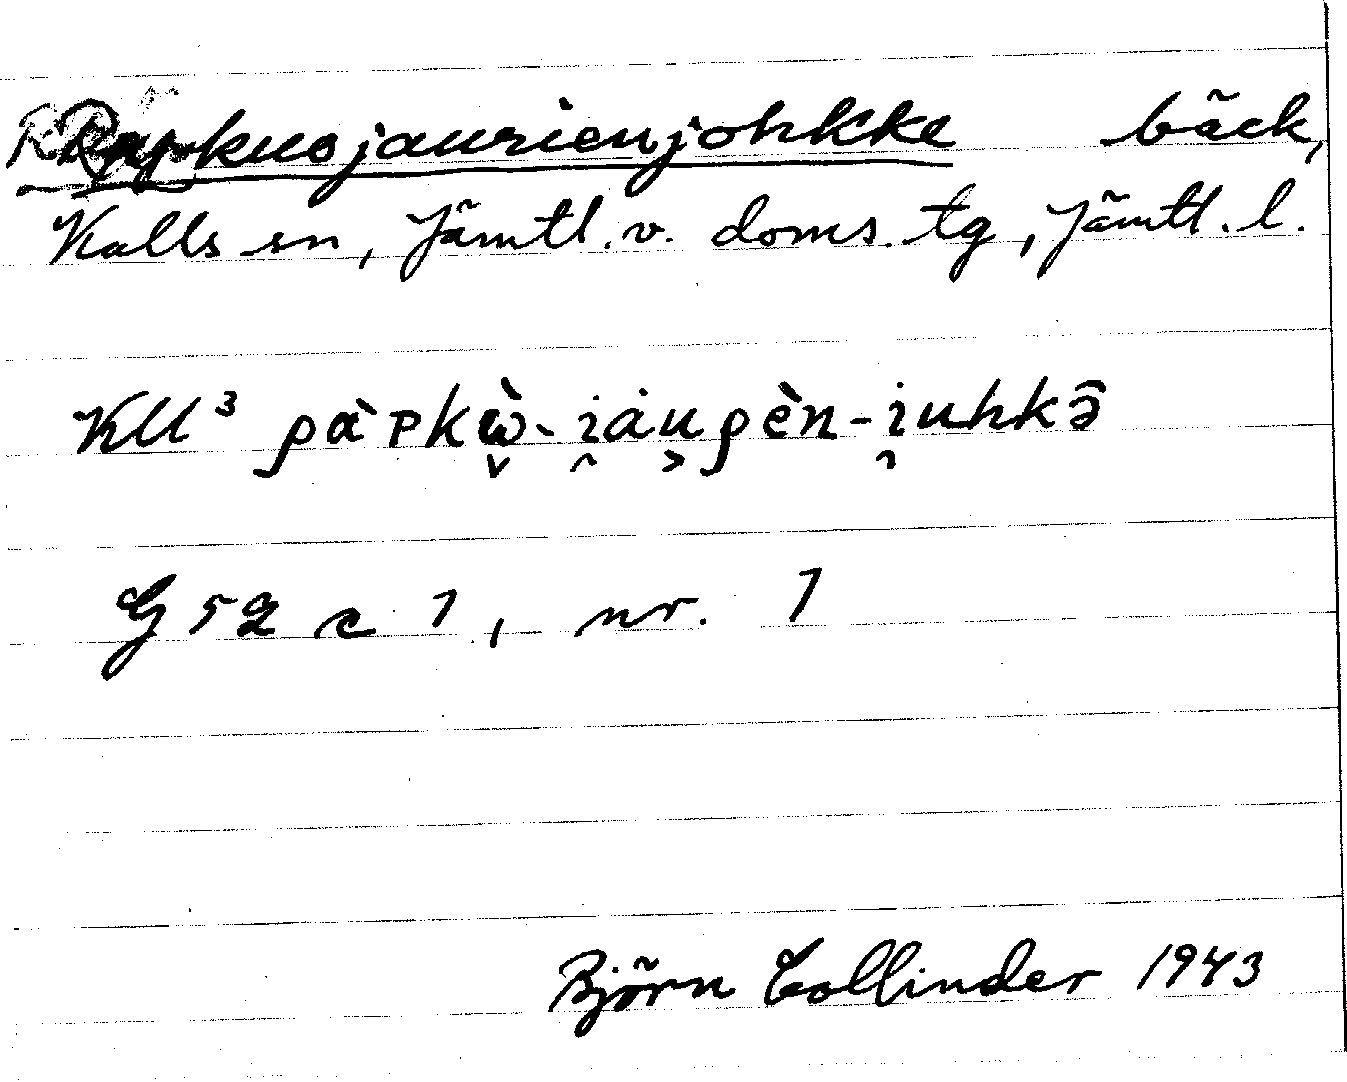 Rapkuojaurienjohkke bäck,
Kalls sn, Jämtl. v. doms. tg, Jämtl. l.
Kll³
G 52 c 1, nr. 1
Björn Collinder 1943